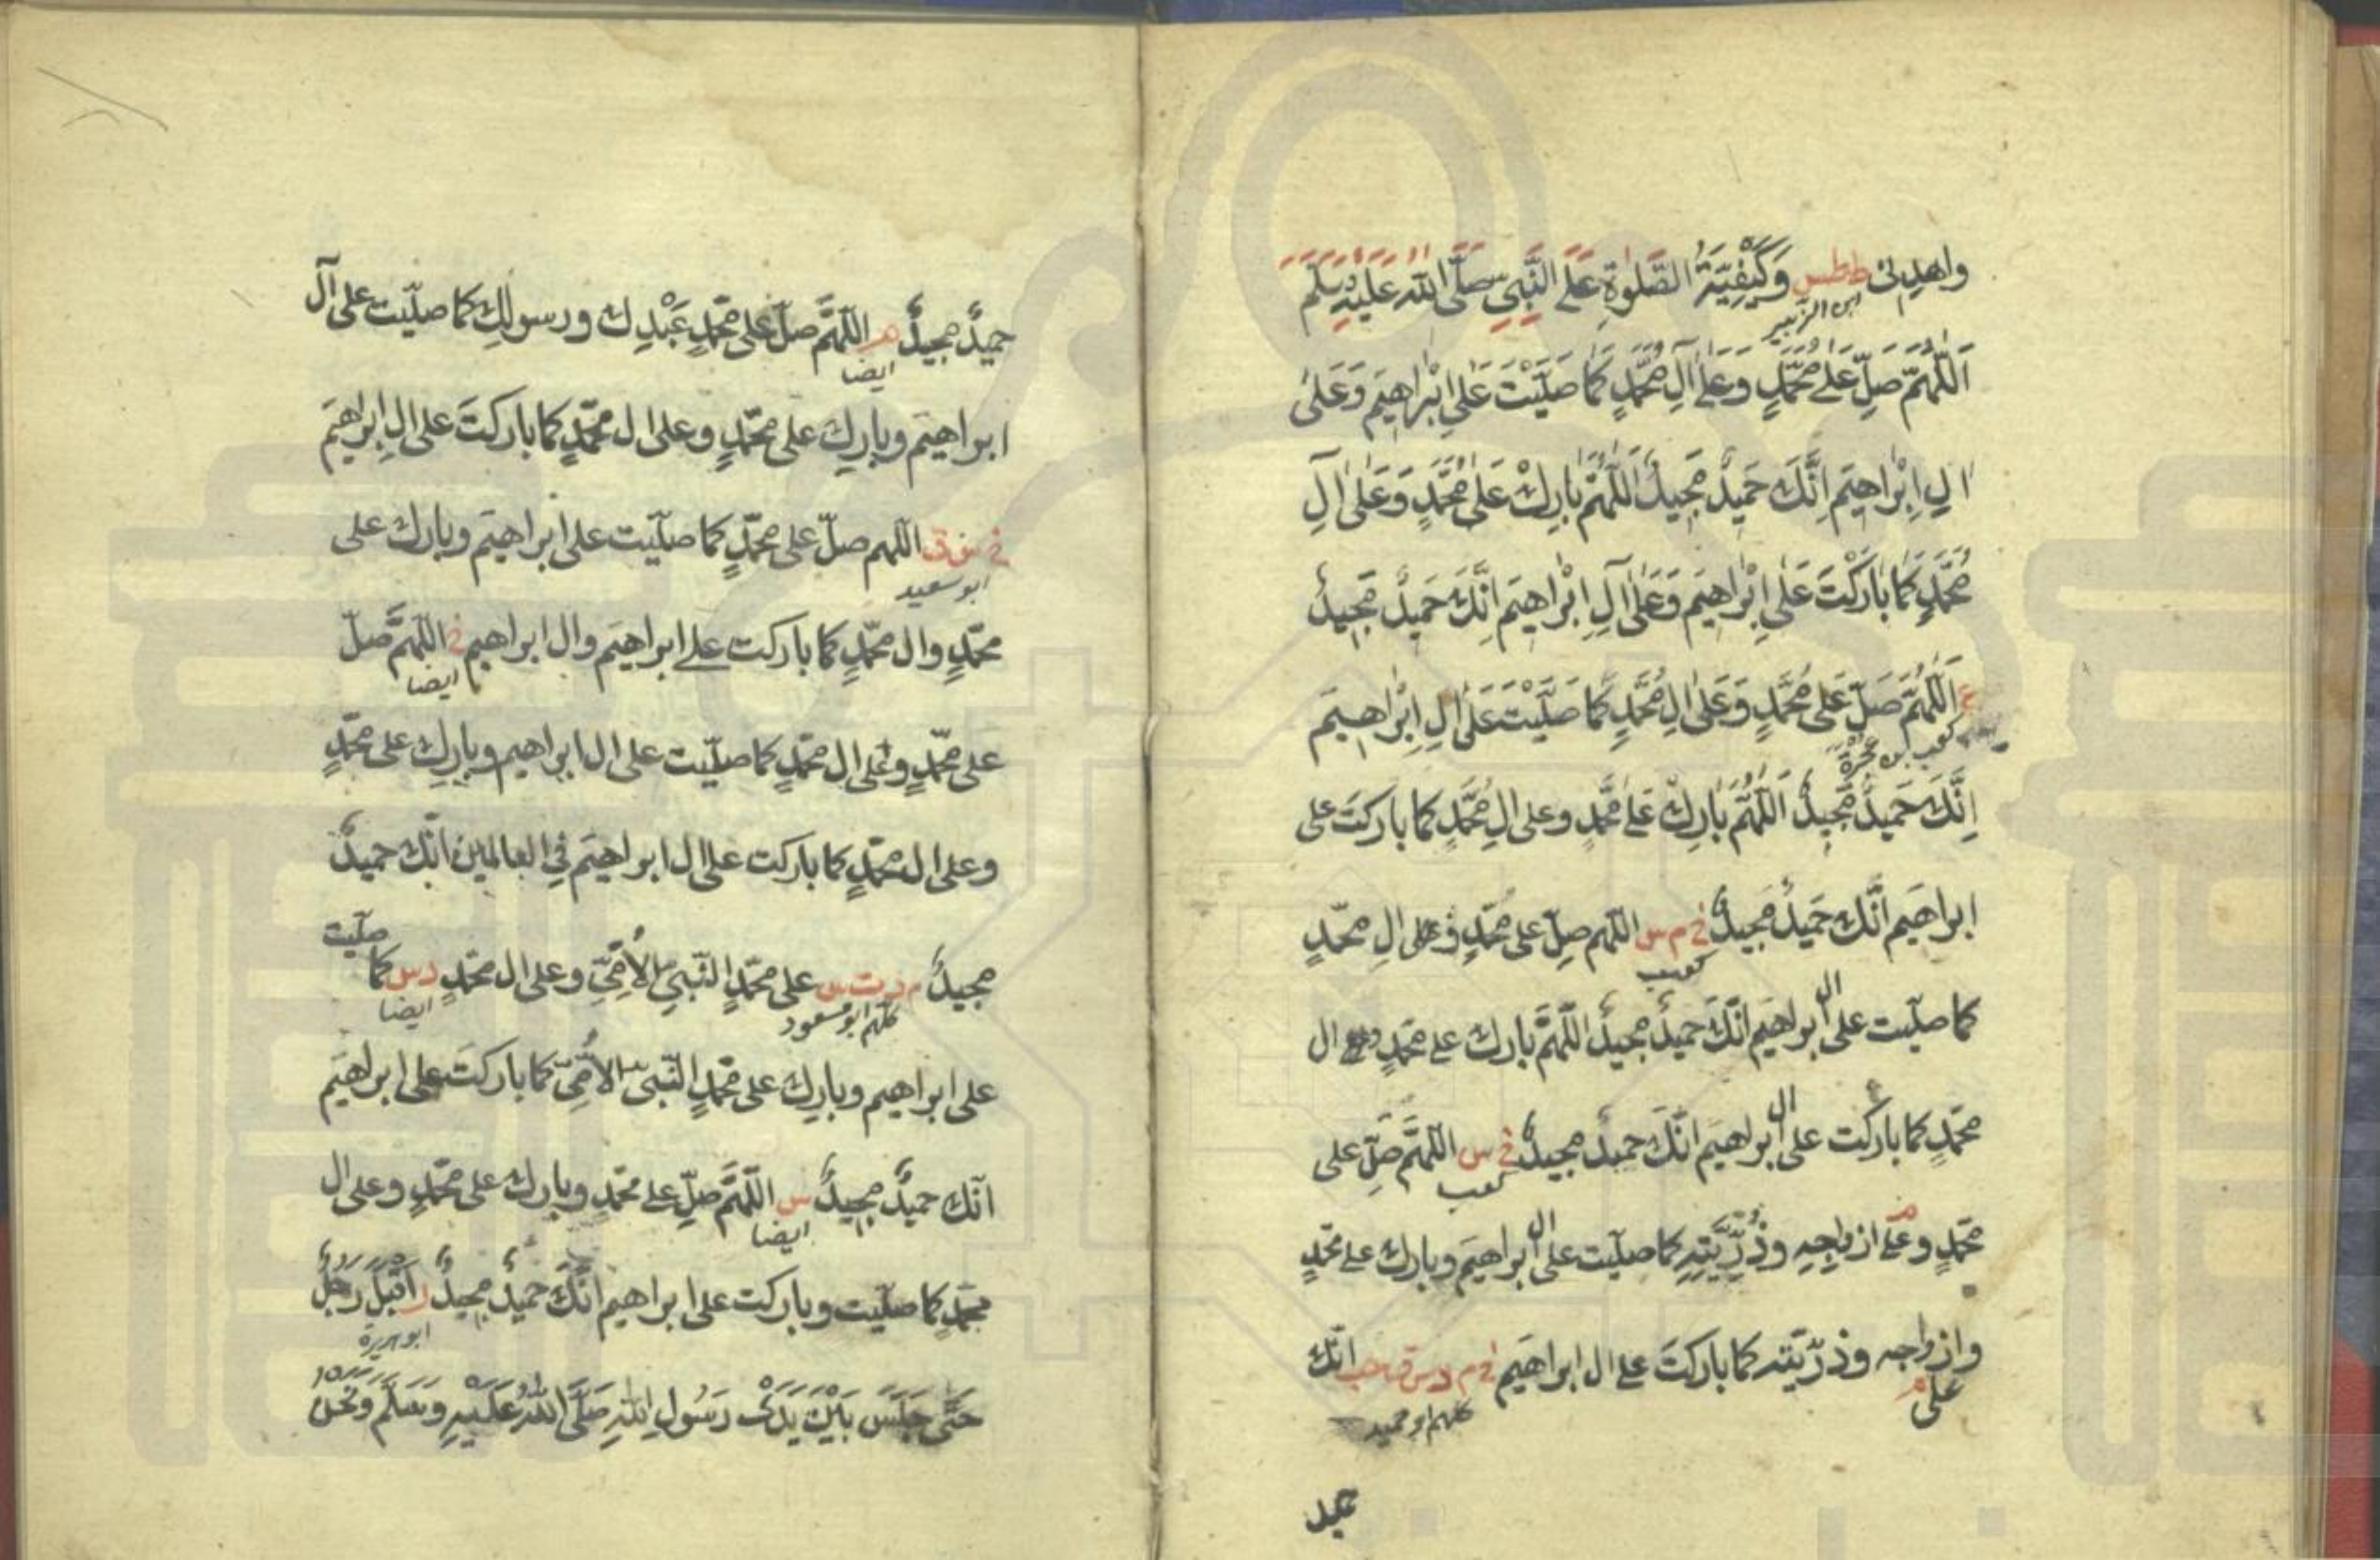 واهدني ططس وَكَيْفِيَّةُ الصَّلٰوةِ عَلَى النَّبِيِّ صَلَّى اللّٰهُ عَلَيْهِ وَسَلَّمَ
ابن الزبير
اَللّٰهُمَّ صَلِّ عَلٰى مُحَمَّدٍ وَعَلٰى آلِ مُحَمَّدٍ كَمَا صَلَّيْتَ عَلٰى اِبْرَاهِيمَ وَعَلٰى
الِ اِبْرَاهِيمَ اِنَّكَ حَمِيدٌ مَجِيدٌ اَللّٰهُمَّ بَارِكْ عَلٰى مُحَمَّدٍ وَعَلٰى آلِ
مُحَمَّدٍ كَمَا بَارَكْتَ عَلٰى اِبْرَاهِيمَ وَعَلٰى آلِ اِبْرَاهِيمَ اِنَّكَ حَمِيدٌ مَجِيدٌ
ع اَللّٰهُمَّ صَلِّ عَلٰى مُحَمَّدٍ وَعَلٰى الِ مُحَمَّدٍ كَمَا صَلَّيْتَ عَلٰى الِ اِبْرَاهِيمَ
كعب بن عجرة
اِنَّكَ حَمِيدٌ مَجِيدٌ اَللّٰهُمَّ بَارِكْ عَلٰى مُحَمَّدٍ وعلى الِ مُحَمَّدٍ كما باركتَ على
ابراهيم انّك حَمِيدٌ مَجِيدٌ خ م س اللّهم صلّ على محمّدٍ وعلى الِ محمّدٍ
كعب
كما صلّيت على ال ابراهيم انّكَ حميدٌ مجيدٌ اللّهمّ بارك على محمّدٍ وعلى ال
محمّدٍ كما باركت على ال ابراهيم انّكَ حميدٌ مجيدٌ خ س اللّهمَّ صَلِّ على
كعب
محمّدٍ وعلى ازواجه وذُرِّيَّتِهِ كما صلّيت على ال ابراهيمَ وبارك على محمّدٍ
وعلى ازواجه وذرّيّته كما باركتَ على ال ابراهيم خ م د س ق انّك
كلهم ابو حميد
حميد
حميدٌ مجيدٌ اللّهمَّ صلّ على محمّدٍ عَبْدِك ورسولِك كما صلّيت على آل
ايضا
ابراهيم وبارِك على محمّدٍ وعلى ال محمّدٍ كما باركتَ على الِ ابراهيمَ
خ س ق اللهم صلّ على محمّدٍ كما صلّيت على ابراهيم وبارك على
ابو سعيد
محمّدٍ وال محمّدٍ كما باركت على ابراهيم وال ابراهيم خ اللّهمَّ صلّ
ايضا
على محمّدٍ وعلى ال محمّدٍ كما صلّيت على ال ابراهيم وبارِك على محمّدٍ
وعلى ال محمّدٍ كما باركت على ال ابراهيم في العالمين انّك حميدٌ
مجيدٌ م د ت س على محمّدٍ النّبيّ الأُمّيّ وعلى ال محمّدٍ د س كما صلّيت
كلهم ابو مسعود ايضا
على ابراهيم وبارِك على محمّدٍ النّبيّ الأُمّيّ كما باركتَ على ابراهيم
انّك حميدٌ مجيدٌ س اللّهمَّ صلّ على محمّدٍ وبارك على محمّدٍ وعلى ال
ايضا
محمّدٍ كما صلّيت وباركت على ابراهيم انّكَ حميدٌ مجيدٌ ر اَقْبَلَ رَجُلٌ
ابو هريرة
حَتّٰى جَلَسَ بَيْنَ يَدَىْ رَسُولِ اللّٰهِ صَلَّى اللّٰهُ عَلَيْهِ وَسَلَّمَ وَنَحْنُ